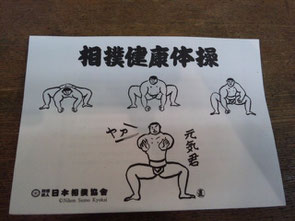 相撲健康体操
ヤァ
元気君
財団法人 日本相撲協会
©Nihon Sumo Kyokai